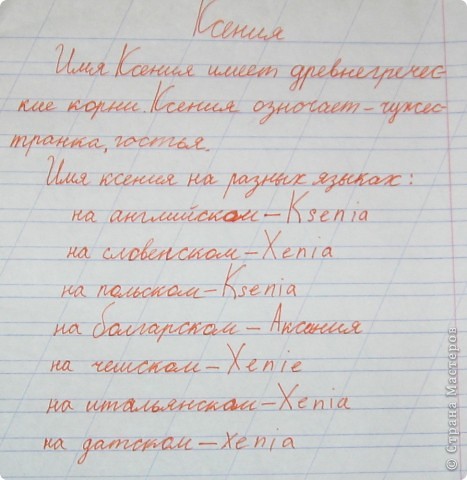 Ксения
Имя Ксения имеет древнегречес-
кие корни. Ксения означает – чужес-
транка, гостья.
Имя ксения на разных языках:
на английском – Ksenia
на словенском – Xenia
на польском – Ksenia
на болгарском – Аксения
на чешском – Xenie
на итальянском – Xenia
на датском – xenia
© Страна Мастеров